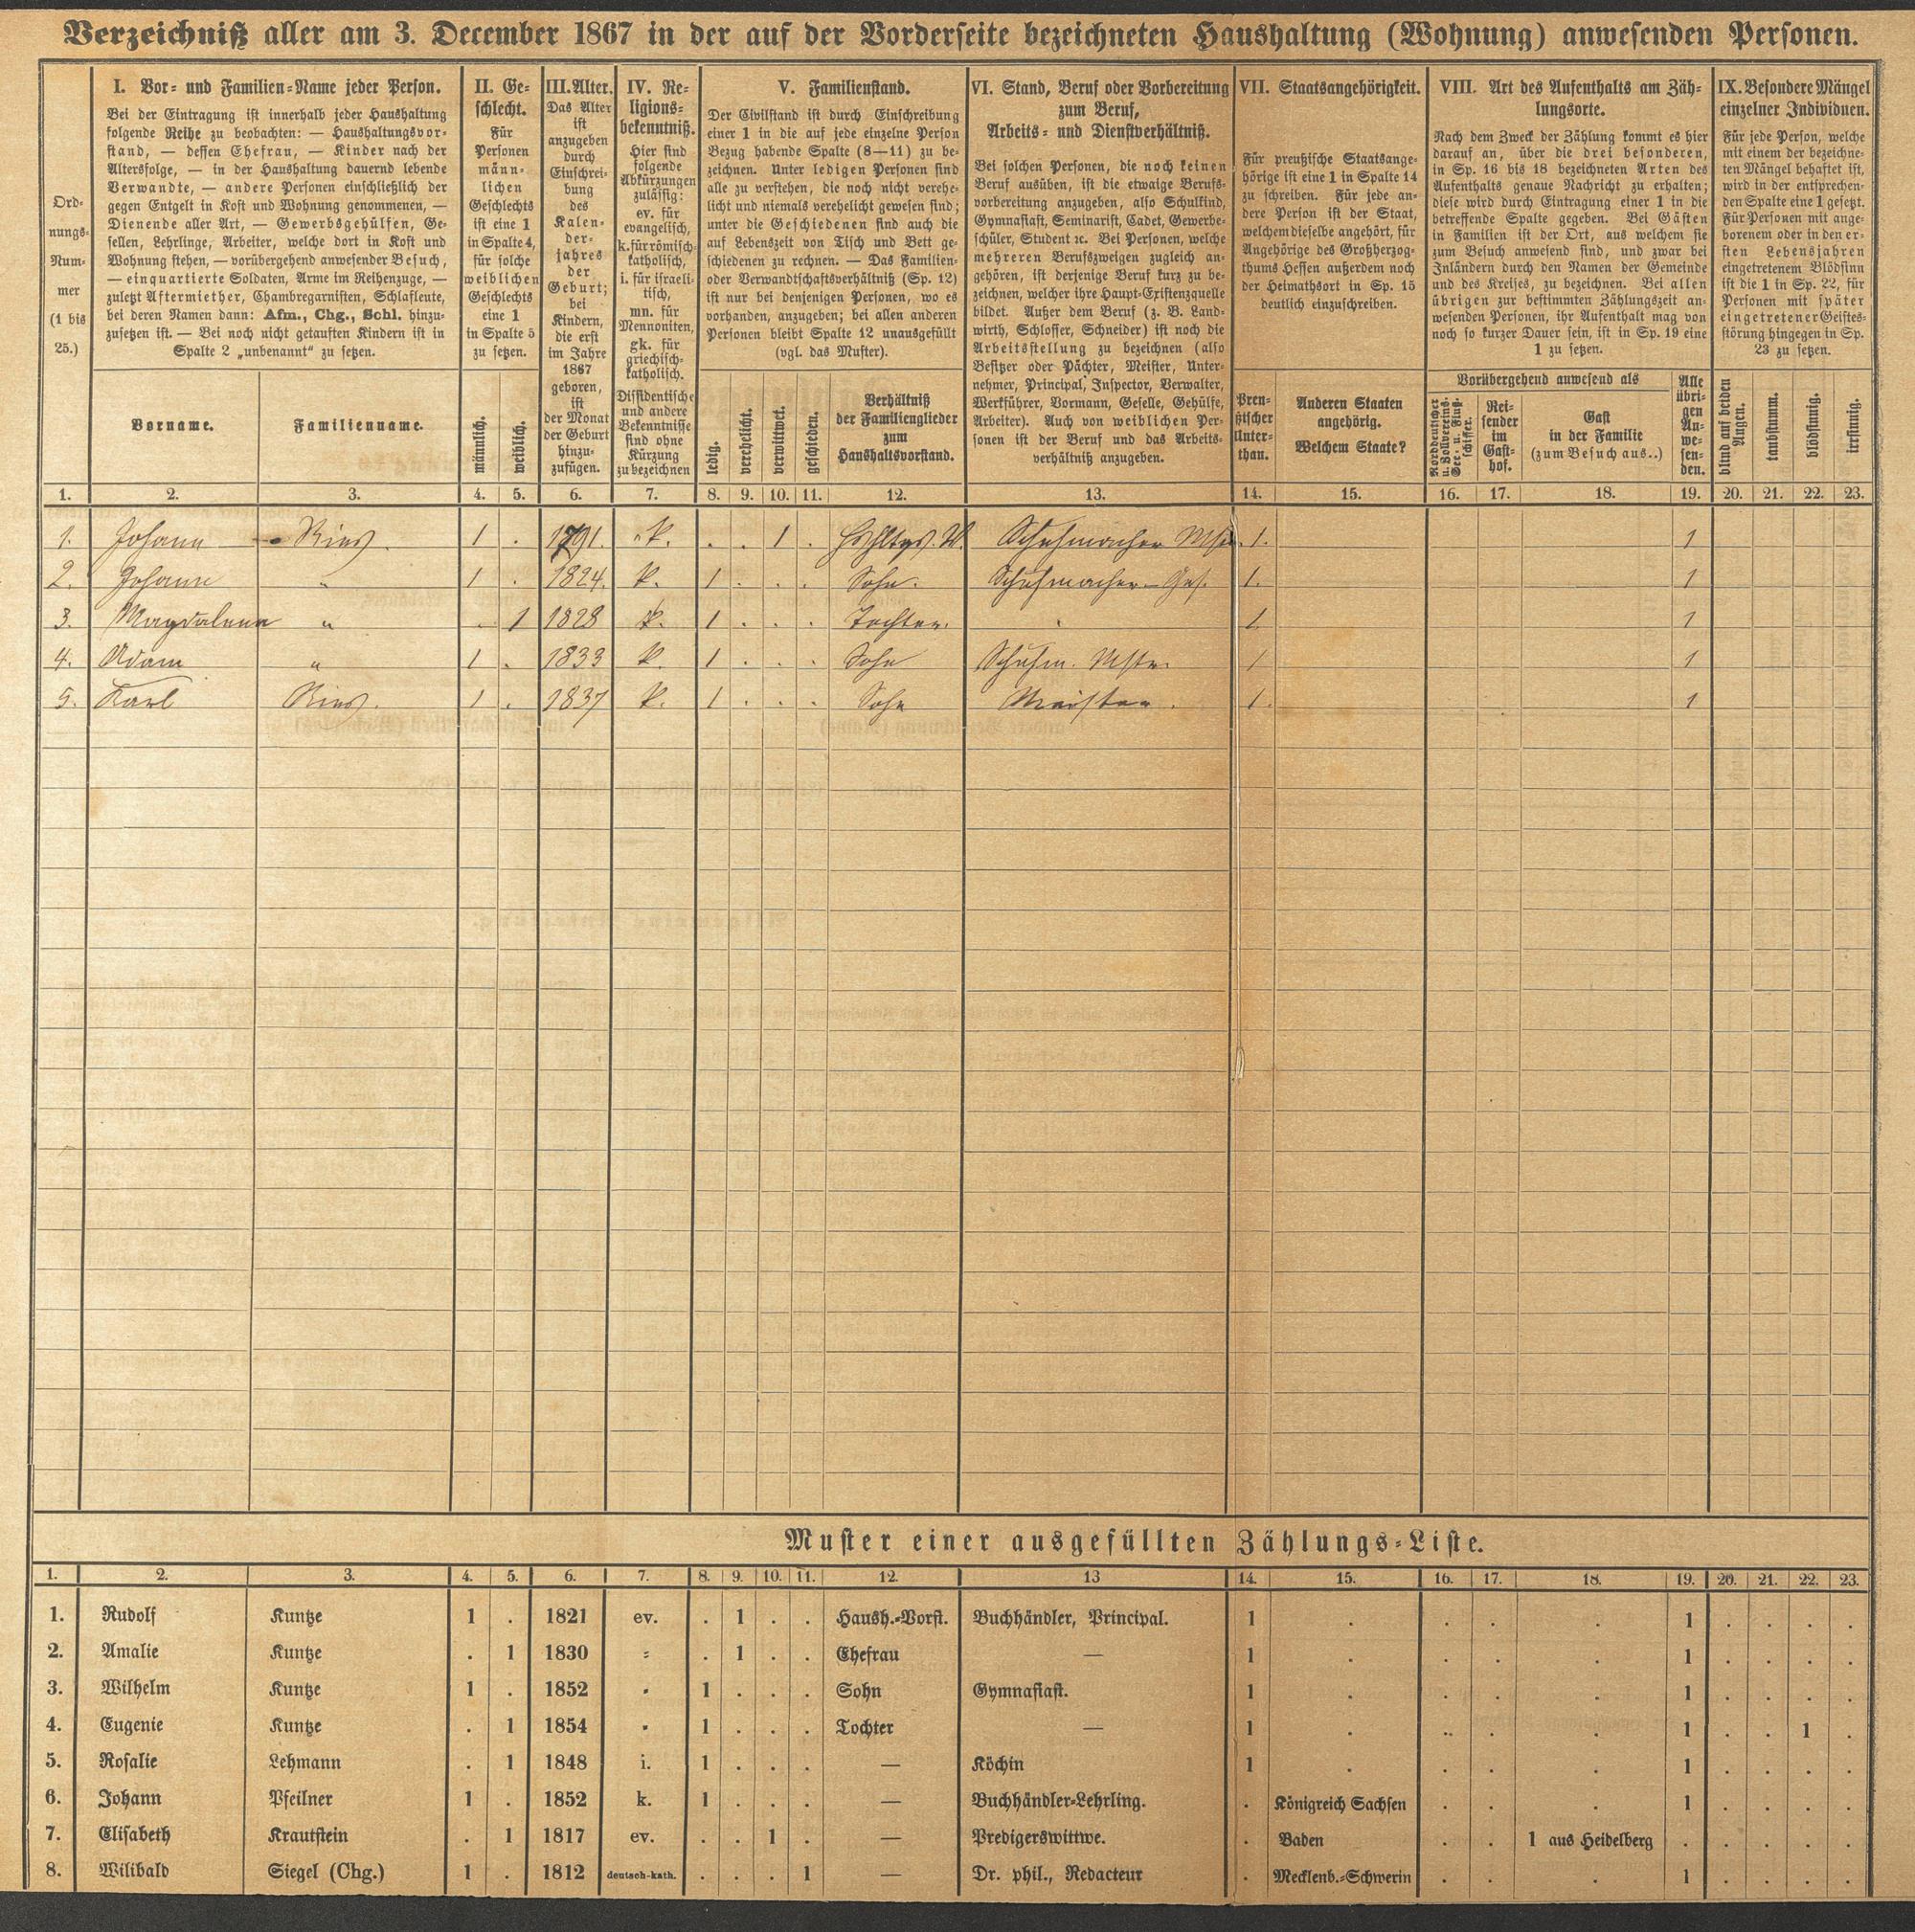 Verzeichniß aller am 3. December 1867 in der auf der Vorderseite bezeichneten Haushaltung (Wohnung) anwesenden Personen.
Ord-
nungs-
Num-
mer
(1 bis
25.)
I. Vor- und Familien-Name jeder Person.
Bei der Eintragung ist innerhalb jeder Haushaltung
folgende Reihe zu beobachten: — Haushaltungsvor-
stand, — dessen Ehefrau, — Kinder nach der
Altersfolge, — in der Haushaltung dauernd lebende
Verwandte, — andere Personen einschließlich der
gegen Entgelt in Kost und Wohnung genommenen, —
Dienende aller Art, — Gewerbsgehülfen, Ge-
sellen, Lehrlinge, Arbeiter, welche dort in Kost und
Wohnung stehen, — vorübergehend anwesender Besuch,
— einquartierte Soldaten, Arme im Reihenzuge, —
zuletzt Aftermiether, Chambregarnisten, Schlafleute,
bei deren Namen dann: Afm., Chg., Schl. hinzu-
zusetzen ist. — Bei noch nicht getauften Kindern ist in
Spalte 2 „unbenannt“ zu setzen.
Vorname.
Familienname.
II. Ge-
schlecht.
Für
Personen
männ-
lichen
Geschlechts
ist eine 1
in Spalte 4,
für solche
weiblichen
Geschlechts
eine 1
in Spalte 5
zu setzen.
männlich.
weiblich.
III. Alter.
Das Alter
ist
anzugeben
durch
Einschrei-
bung
des
Kalen-
der-
jahres
der
Geburt;
bei
Kindern,
die erst
im Jahre
1867
geboren,
ist
der Monat
der Geburt
hinzu-
zufügen.
IV. Re-
ligions-
bekenntniß.
Hier sind
folgende
Abkürzungen
zulässig:
ev. für
evangelisch,
k. für römisch-
katholisch,
i. für israeli-
tisch,
mn. für
Mennoniten,
gk. für
griechisch-
katholisch.
Dissidentische
und andere
Bekenntnisse
sind ohne
Kürzung
zu bezeichnen
V. Familienstand.
Der Civilstand ist durch Einschreibung
einer 1 in die auf jede einzelne Person
Bezug habende Spalte (8—11) zu be-
zeichnen. Unter ledigen Personen sind
alle zu verstehen, die noch nicht verehe-
licht und niemals verehelicht gewesen sind;
unter die Geschiedenen sind auch die
auf Lebenszeit von Tisch und Bett ge-
schiedenen zu rechnen. — Das Familien-
oder Verwandtschaftsverhältniß (Sp. 12)
ist nur bei denjenigen Personen, wo es
vorhanden, anzugeben; bei allen anderen
Personen bleibt Spalte 12 unausgefüllt
(vgl. das Muster).
ledig.
verehelicht.
verwittwet.
geschieden.
Verhältniß
der Familienglieder
zum
Haushaltsvorstand.
VI. Stand, Beruf oder Vorbereitung
zum Beruf,
Arbeits- und Dienstverhältniß.
Bei solchen Personen, die noch keinen
Beruf ausüben, ist die etwaige Berufs-
vorbereitung anzugeben, also Schulkind,
Gymnasiast, Seminarist, Cadet, Gewerbe-
schüler, Student ꝛc. Bei Personen, welche
mehreren Berufszweigen zugleich an-
gehören, ist derjenige Beruf kurz zu be-
zeichnen, welcher ihre Haupt-Existenzquelle
bildet. Außer dem Beruf (z. B. Land-
wirth, Schlosser, Schneider) ist noch die
Arbeitsstellung zu bezeichnen (also
Besitzer oder Pächter, Meister, Unter-
nehmer, Principal, Inspector, Verwalter,
Werkführer, Vormann, Geselle, Gehülfe,
Arbeiter). Auch von weiblichen Per-
sonen ist der Beruf und das Arbeits-
verhältniß anzugeben.
VII. Staatsangehörigkeit.
Für preußische Staatsange-
hörige ist eine 1 in Spalte 14
zu schreiben. Für jede an-
dere Person ist der Staat,
welchem dieselbe angehört, für
Angehörige des Großherzog-
thums Hessen außerdem noch
der Heimathsort in Sp. 15
deutlich einzuschreiben.
Preu-
ßischer
Unter-
than.
Anderen Staaten
angehörig.
Welchem Staate?
VIII. Art des Aufenthalts am Zäh-
lungsorte.
Nach dem Zweck der Zählung kommt es hier
darauf an, über die drei besonderen,
in Sp. 16 bis 18 bezeichneten Arten des
Aufenthalts genaue Nachricht zu erhalten;
diese wird durch Eintragung einer 1 in die
betreffende Spalte gegeben. Bei Gästen
in Familien ist der Ort, aus welchem sie
zum Besuch anwesend sind, und zwar bei
Inländern durch den Namen der Gemeinde
und des Kreises, zu bezeichnen. Bei allen
übrigen zur bestimmten Zählungszeit an-
wesenden Personen, ihr Aufenthalt mag von
noch so kurzer Dauer sein, ist in Sp. 19 eine
1 zu setzen.
Vorübergehend anwesend als
Norddeutscher
u. Zollvereins-
See- u. Fluß-
schiffer.
Rei-
sender
im
Gast-
hof.
Gast
in der Familie
(zum Besuch aus..)
Alle
übri-
gen
An-
we-
sen-
den.
IX. Besondere Mängel
einzelner Individuen.
Für jede Person, welche
mit einem der bezeichne-
ten Mängel behaftet ist,
wird in der entsprechen-
den Spalte eine 1 gesetzt.
Für Personen mit ange-
borenem oder in den er-
sten Lebensjahren
eingetretenem Blödsinn
ist die 1 in Sp. 22, für
Personen mit später
eingetretener Geistes-
störung hingegen in Sp.
23 zu setzen.
blind auf beiden
Augen.
taubstumm.
blödsinnig.
irrsinnig.
1. 2. 3. 4. 5. 6. 7. 8. 9. 10. 11. 12. 13. 14. 15. 16. 17. 18. 19. 20. 21. 22. 23.
1. Johann Ries. 1 . 1791. k. . . 1 . Schuhmacher Mstr. 1. 1
2. Johann " 1 . 1824. k. 1 . . . Sohn. Schuhmacher-Ges. 1. 1
3. Magdalena " . 1 1828 k. 1 . . . Tochter. . 1 1
4. Adam " 1 . 1833 k. 1 . . . Sohn Schuhm. Mstr. 1 1
5. Karl Ries. 1 . 1837 k. 1 . . . Sohn Meister. 1. 1
Muster einer ausgefüllten Zählungs-Liste.
1. 2. 3. 4. 5. 6. 7. 8. 9. 10. 11. 12. 13 14. 15. 16. 17. 18. 19. 20. 21. 22. 23.
1. Rudolf Kuntze 1 . 1821 ev. . 1 . . Haush.-Vorst. Buchhändler, Principal. 1 . . . . 1 . . . .
2. Amalie Kuntze . 1 1830 " . 1 . . Ehefrau — 1 . . . . 1 . . . .
3. Wilhelm Kuntze 1 . 1852 " 1 . . . Sohn Gymnasiast. 1 . . . . 1 . . . .
4. Eugenie Kuntze . 1 1854 " 1 . . . Tochter — 1 . . . . 1 . . 1 .
5. Rosalie Lehmann . 1 1848 i. 1 . . . — Köchin 1 . . . . 1 . . . .
6. Johann Pfeilner 1 . 1852 k. 1 . . . — Buchhändler-Lehrling. . Königreich Sachsen . . . 1 . . . .
7. Elisabeth Krautstein . 1 1817 ev. . . 1 . — Predigerswittwe. . Baden . . 1 aus Heidelberg . . . . .
8. Wilibald Siegel (Chg.) 1 . 1812 deutsch-kath. . . . 1 — Dr. phil., Redacteur . Mecklenb.-Schwerin . . . 1 . . . .